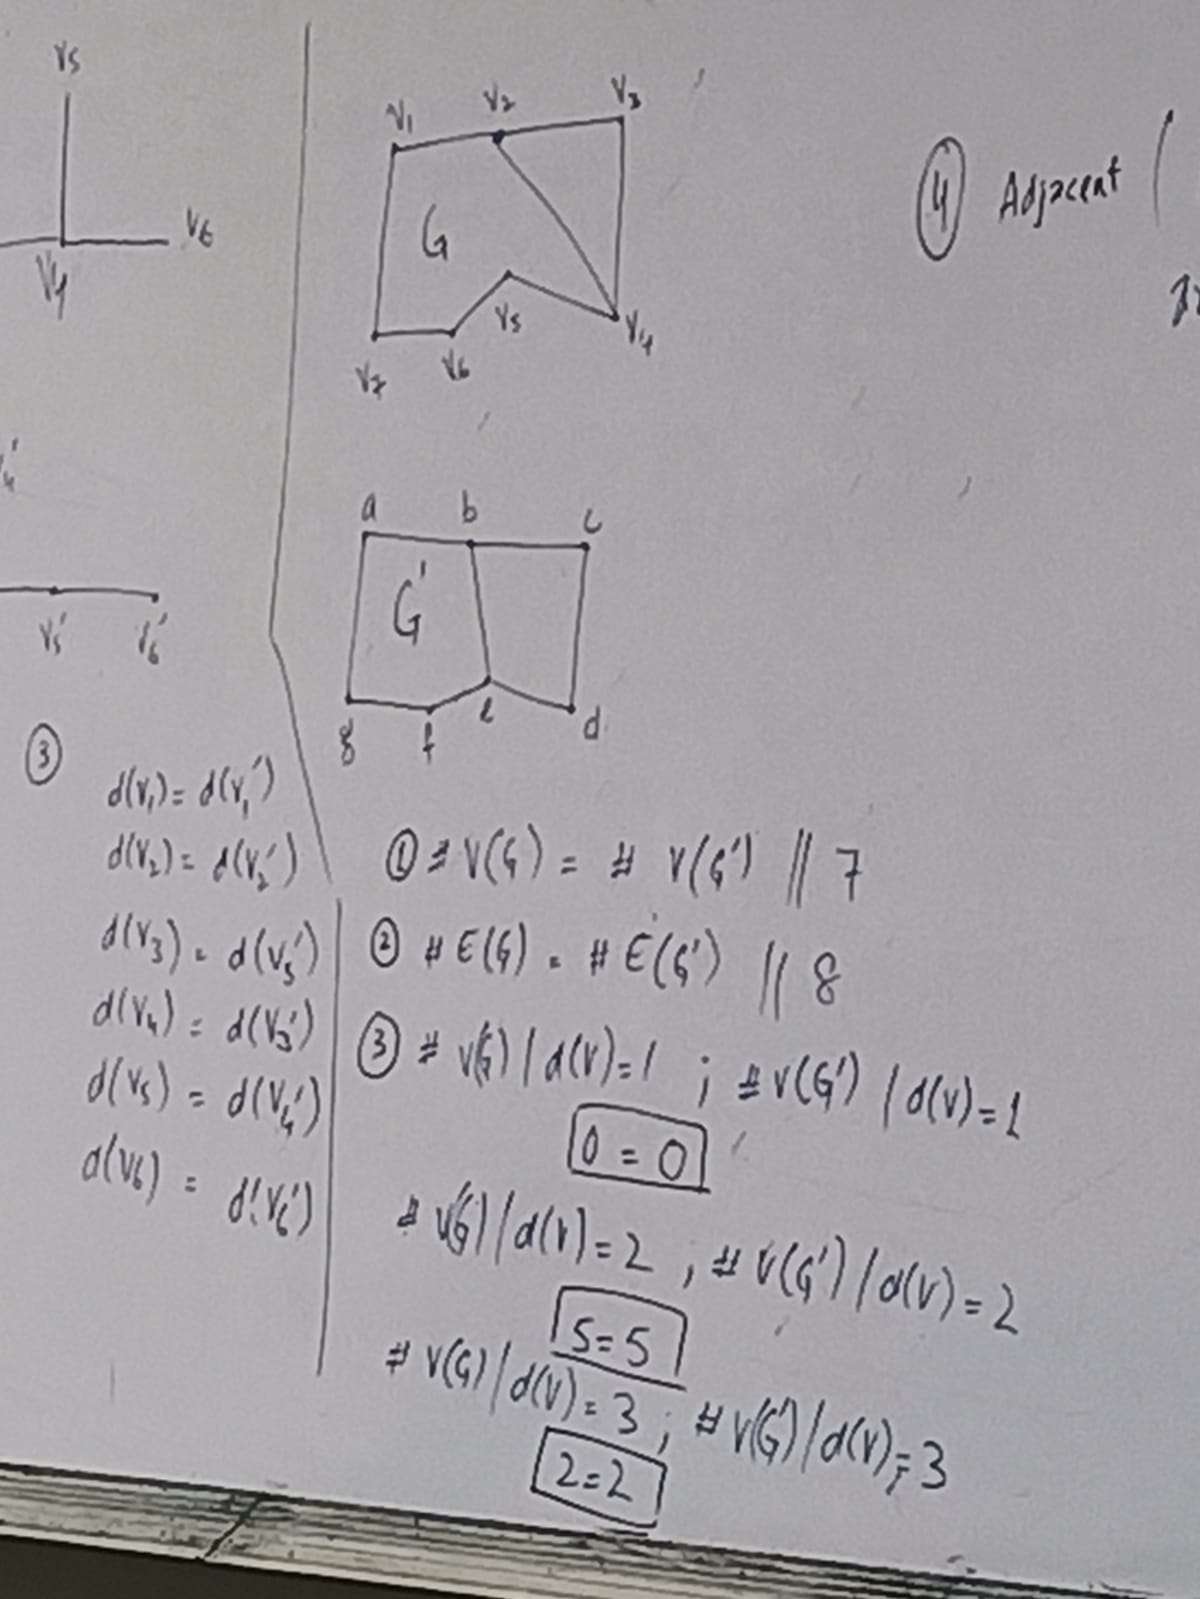 V5
V6
V4
V4'
V5' V6'
③
d(V1) = d(V1')
d(V2) = d(V2')
d(V3) = d(V5')
d(V4) = d(V3')
d(V5) = d(V4')
d(V6) = d(V6')
V1 V2 V3
G
V7 V6 V5 V4
a b c
G'
g f e d
① # V(G) = # V(G') // 7
② # E(G) = # E(G') // 8
③ # V(G) / d(V)=1 ; # V(G') / d(V)=1
0 = 0
# V(G) / d(V)=2 ; # V(G') / d(V)=2
5=5
# V(G) / d(V)=3 ; # V(G') / d(V)=3
2=2
④ Adjacent (